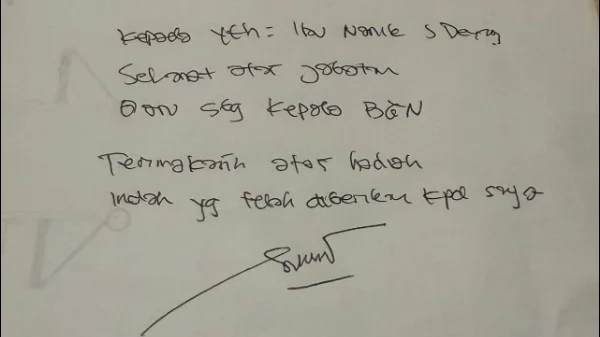 Kepada Yth = Ibu Nanik S Deyang
Selamat atas jabatan
Baru sbg Kepala BGN
Terimakasih atas hadiah
Indah yg telah diberikan kpd saya